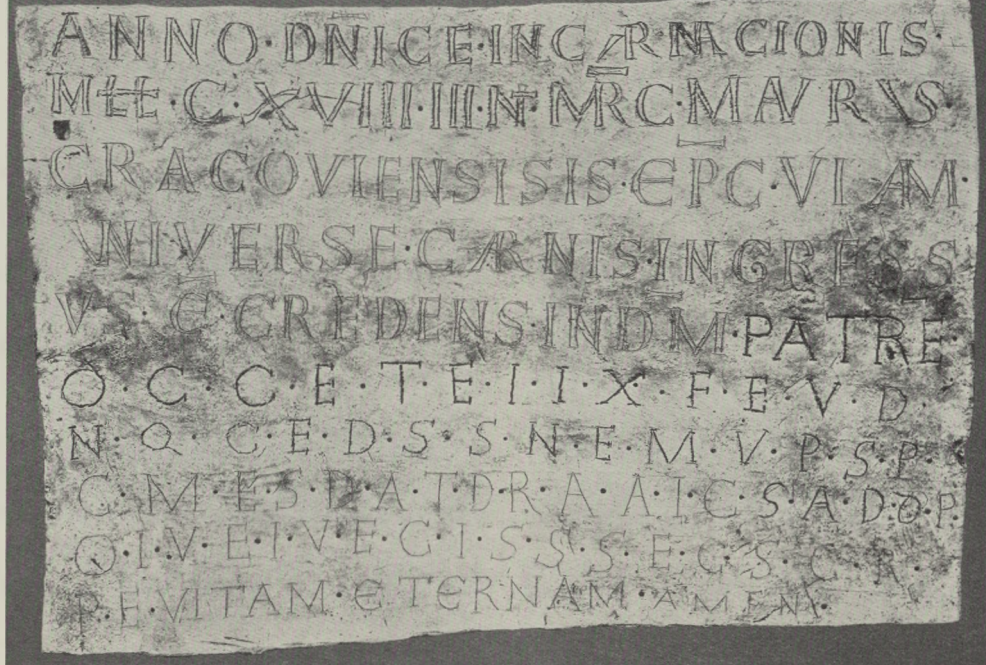 ANNO·DNICE·INCARNACIONIS·
MLL·C·XVIIII·IIII·N·MRC·MAVRVS
CRACOVIENSISIS·EPC·VIAM·
VNIVERSE·CARNIS·INGRESS
VS·E·CREDENS·INDM·PATRE·
O·C·C·E·T·E·I·I·X·F·E·V·D·
N·Q·C·E·D·S·S·N·E·M·V·P·S·P·
C·M·E·S·D·A·T·D·R·A·A·I·C·S·A·D·D·P
O·I·V·E·I·V·E·C·I·S·S·S·E·C·S·C·R·
P·E·VITAM·ETERNAM·AMEN·